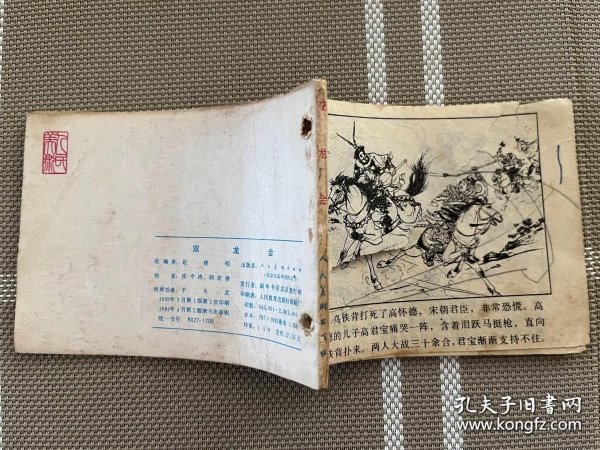 双龙会
改编者：赵 明
绘者：张令涛、胡若佛
封面绘者：于大武
1959年9月第1版第1次印刷
1981年4月第2版第5次印刷
统一书号：8027·1708
出版者：人民美术出版社
发行者：新华书店北京发行所
印刷者：人民教育出版社印刷厂
双龙会
乌铁背打死了高怀德，宋朝君臣，非常恐慌。高
的儿子高君宝痛哭一阵，含着泪跃马挺枪，直向
铁背扑来。两人大战三十余合，君宝渐渐支持不住。
孔夫子旧书网
www.kongfz.com